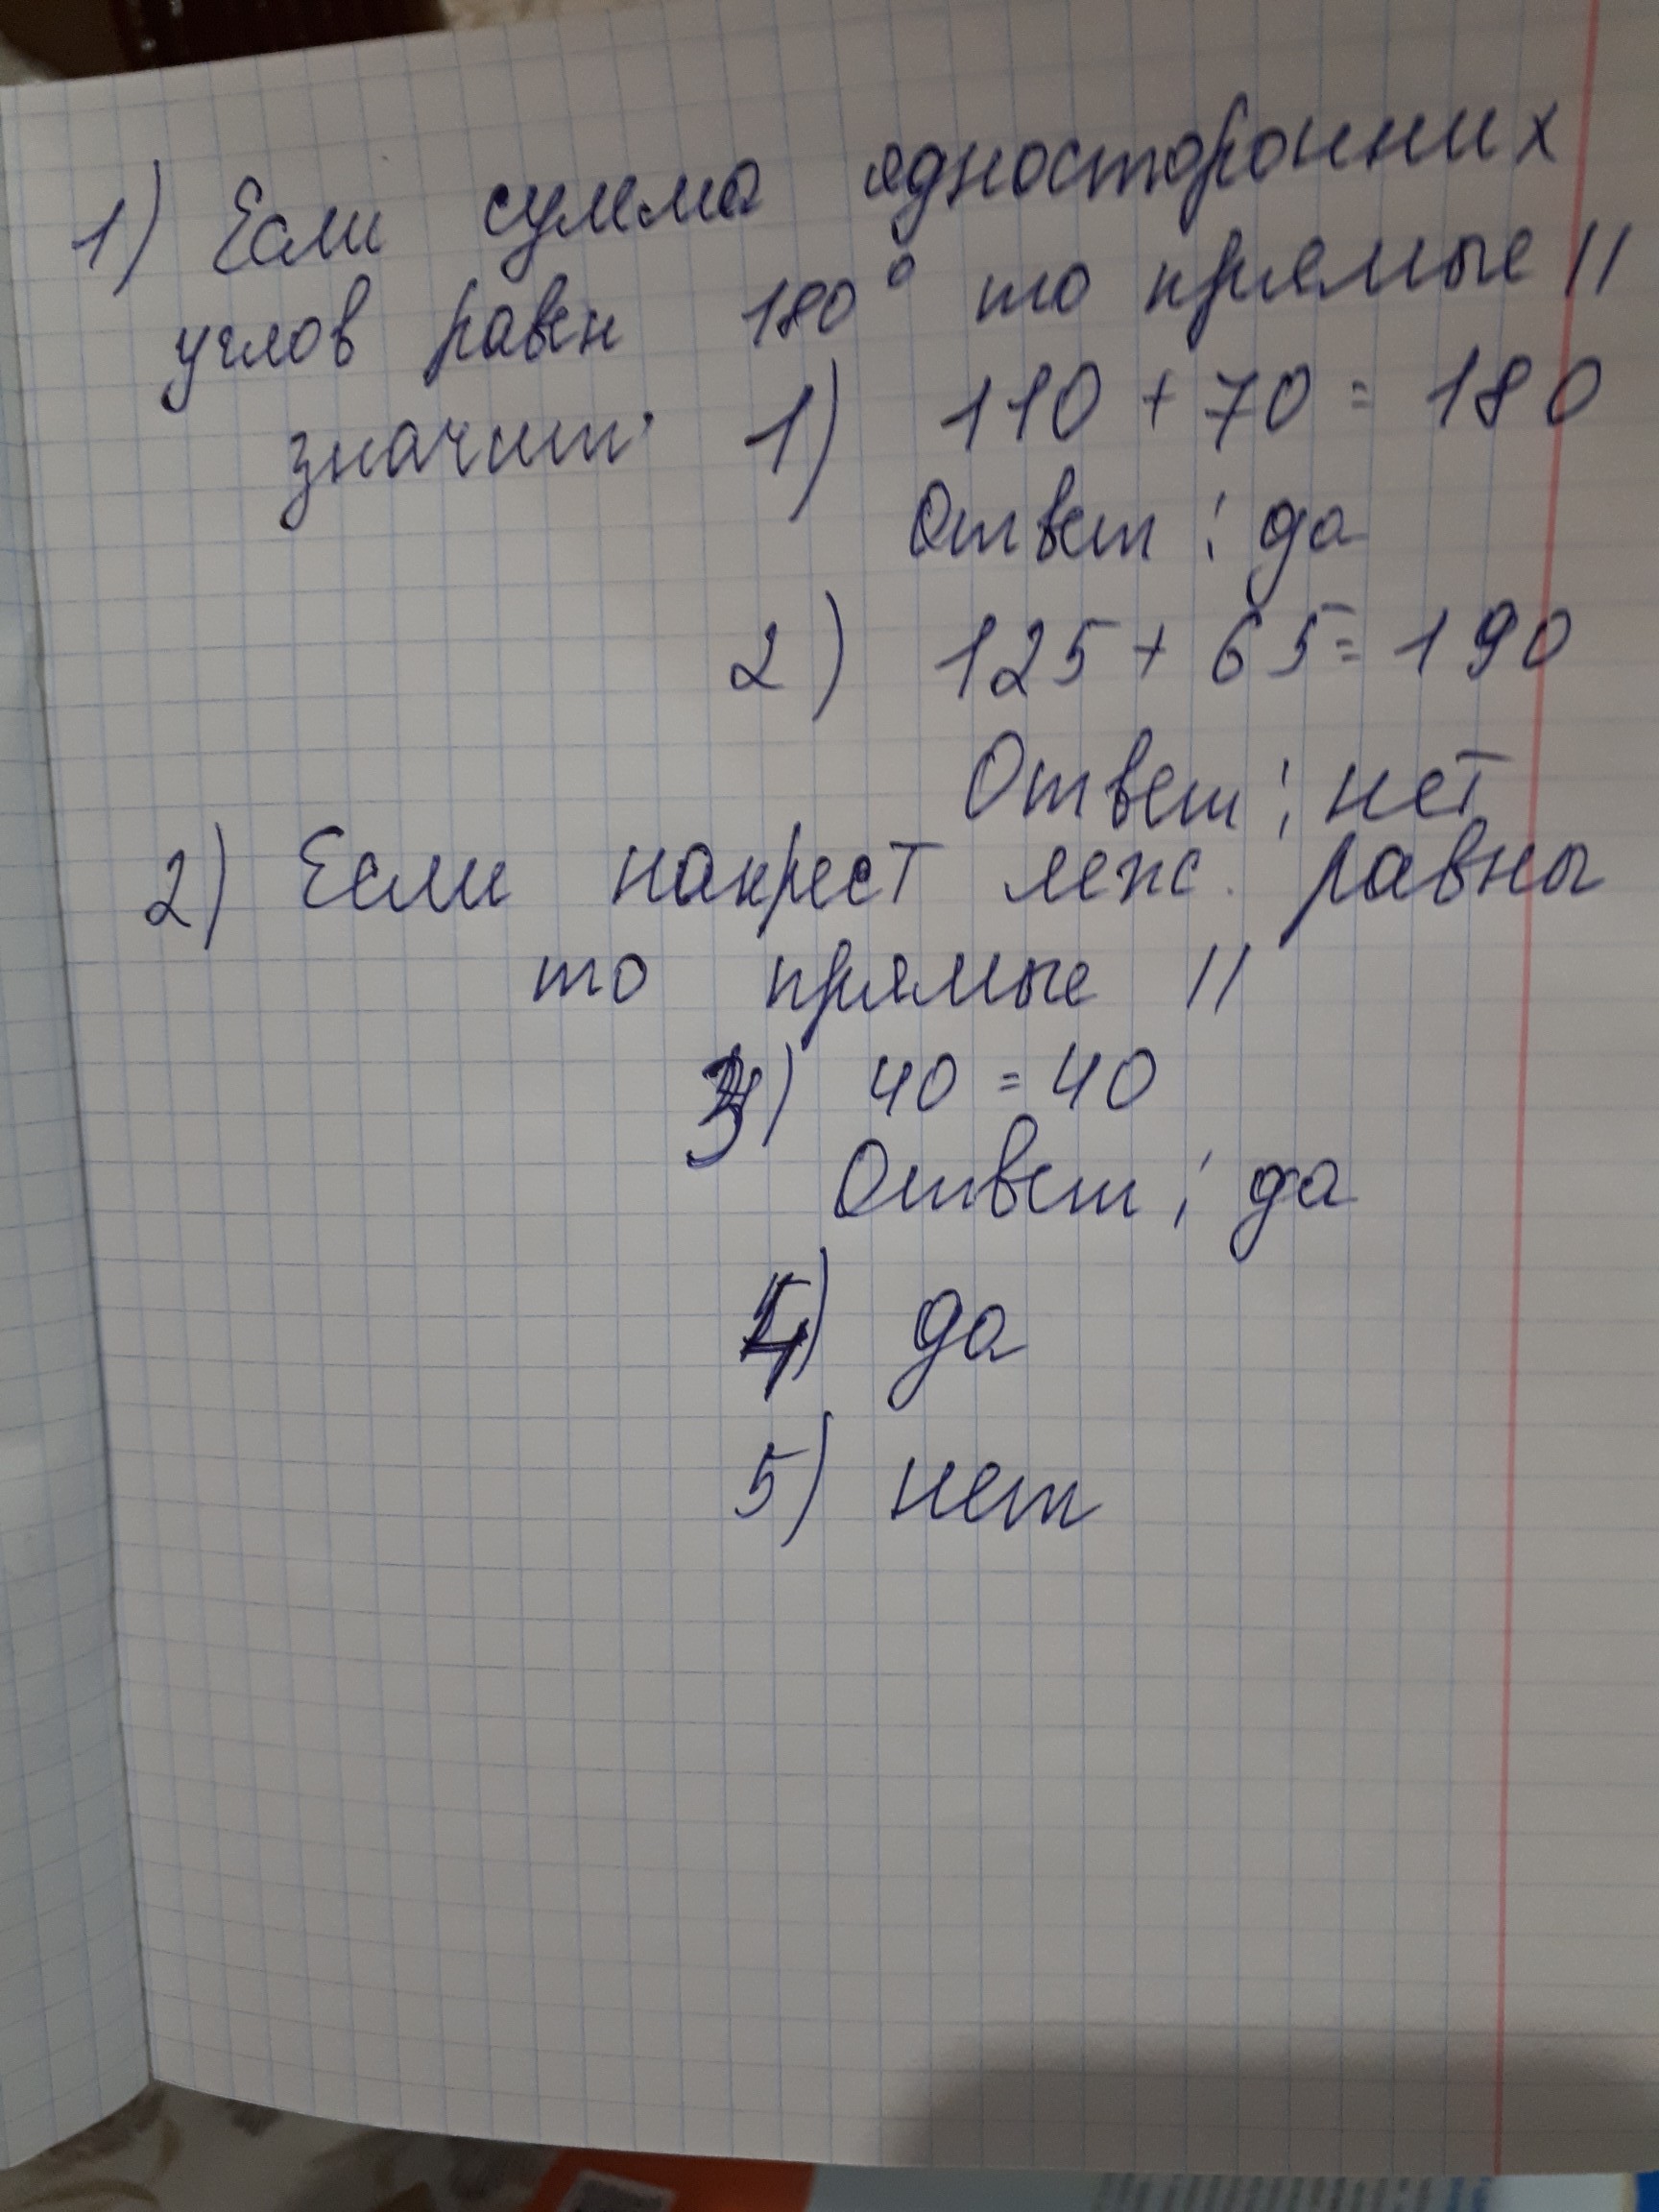 1) Если сумма ядносторонних
углов равен 180° то прямые ||
значит: 1) 110 + 70 = 180
Ответ: да
2) 125 + 65 = 190
Ответ: нет
2) Если накрест леж. равны
то прямые ||
3) 40 = 40
Ответ: да
4) да
5) нет